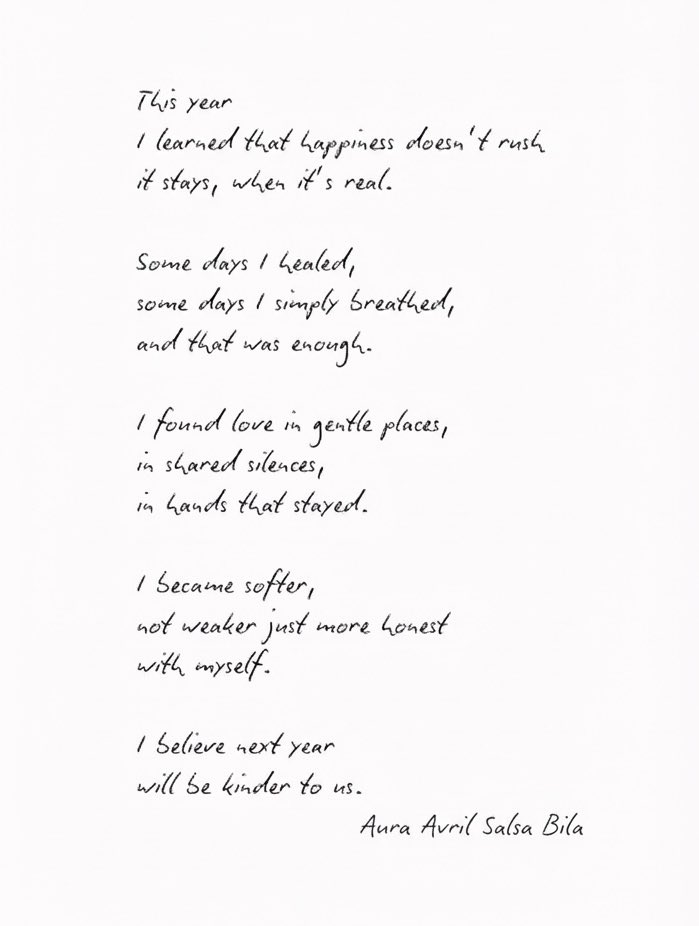 This year
I learned that happiness doesn't rush
it stays, when it's real.
Some days I healed,
some days I simply breathed,
and that was enough.
I found love in gentle places,
in shared silences,
in hands that stayed.
I became softer,
not weaker just more honest
with myself.
I believe next year
will be kinder to us.
Aura Avril Salsa Bila